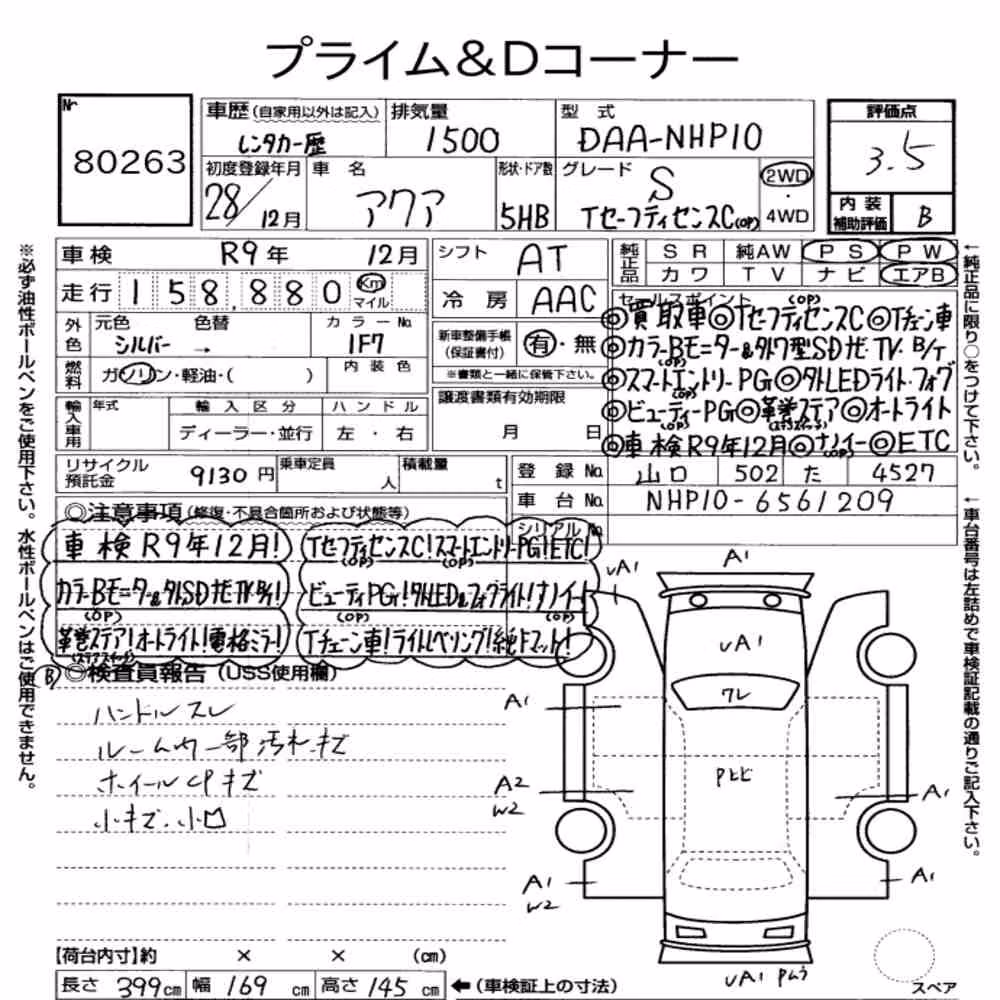 プライム&Dコーナー
№ 80263
車歴(自家用以外は記入) レンタカー歴
排気量 1500
型式 DAA-NHP10
評価点 3.5
初度登録年月 28/12月
車名 アクア
形状・ドア数 5HB
グレード S TセーフティセンスC(OP)
2WD・4WD
内装補助評価 B
車検 R9年 12月
シフト AT
純正品 SR 純AW PS PW
カワ TV ナビ エアB
走行 158,880 Km マイル
冷房 AAC
外色 元色 シルバー 色替 → カラーNo. 1F7
新車整備手帳(保証書付) 有・無
※書類と一緒に保管下さい。
燃料 ガソリン・軽油・( ) 内装色
譲渡書類有効期限 月 日
輸入車用 年式 輸入区分 ハンドル
ディーラー・並行 左・右
セールスポイント
◎買取車◎TセーフティセンスC(OP)◎Tチェーン車
◎カラーBモニター&外ワ型SDナビ・TV・B/T
◎スマートエントリーPG(OP)◎外LEDライト・フォグ(OP)
◎ビューティーPG(OP)◎革巻ステア(ステアスイッチ)◎オートライト
◎車検R9年12月◎ナノイー◎ETC
リサイクル預託金 9130円 乗車定員 人 積載量 t
登録No. 山口 502 た 4527
車台No. NHP10-6561209
シリアルNo.
◎注意事項(修復・不具合箇所および状態等)
車検R9年12月! TセーフティセンスC!(OP)スマートエントリーPG!(OP)ETC!
カラーBモニター&外SDナビTVB/T! ビューティPG!(OP)外LED&フォグライト!(OP)ナノイー!
(OP)革巻ステア!(ステアスイッチ)オートライト!電格ミラー! Tチェーン車!ライトレベリング!純Fマット!
Ⓑ◎検査員報告(USS使用欄)
ハンドルスレ
ルーム内一部汚れ・キズ
ホイールCPキズ
小キズ・小凹
A1
uA1
uA1
ワレ
A1
Pヒビ
A2
W2
A1
A1
W2
A1
uA1
スペア
【荷台内寸】約 × × (cm)
長さ 399cm 幅 169cm 高さ 145cm ←(車検証上の寸法)
※必ず油性ボールペンをご使用下さい。水性ボールペンはご使用できません。
←純正品に限り○をつけて下さい。
←車台番号は左詰めで車検証記載の通りご記入下さい。